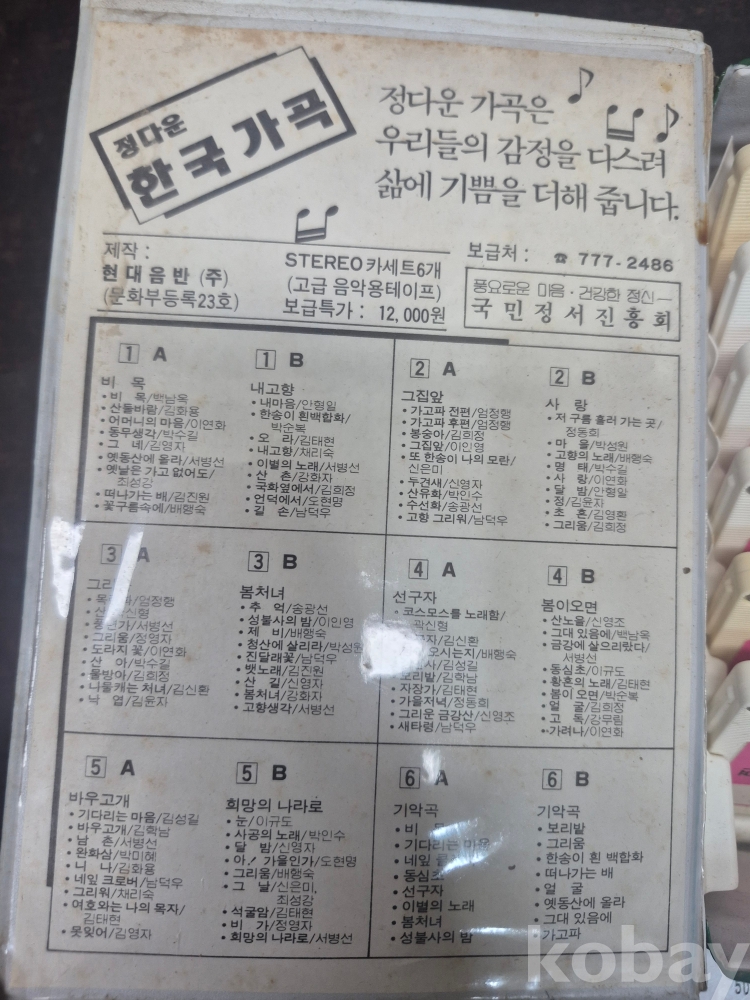 정다운
한국가곡
정다운 가곡은
우리들의 감정을 다스려
삶에 기쁨을 더해 줍니다.
제작 :
현대음반 (주)
(문화부등록23호)
STEREO카세트6개
(고급 음악용테이프)
보급특가 : 12,000원
보급처 : ☎ 777-2486
풍요로운 마음·건강한 정신—
국민정서진흥회
1 A
비 목
• 비 목/백남옥
• 산들바람/김화용
• 어머니의 마음/이연화
• 동무생각/박수길
• 그 네/김영자
• 옛동산에 올라/서병선
• 옛날은 가고 없어도/
최성강
• 떠나가는 배/김진원
• 꽃구름속에/배행숙
1 B
내고향
• 내마음/안형일
• 한송이 흰백합화/
박순복
• 오 라/김태현
• 내고향/채리숙
• 이별의 노래/서병선
• 산 촌/강화자
• 국화옆에서/김희정
• 언덕에서/도현명
• 길 손/남덕우
2 A
그집앞
• 가고파 전편/엄정행
• 가고파 후편/엄정행
• 봉숭아/김희정
• 그집앞/이인영
• 또 한송이 나의 모란/
신은미
• 두견새/신영자
• 산유화/박인수
• 수선화/송광선
• 고향 그리워/남덕우
2 B
사 랑
• 저 구름 흘러 가는 곳/
정동희
• 마 을/박성원
• 고향의 노래/배행숙
• 명 태/박수길
• 사 랑/이연화
• 달 밤/안형일
• 정/김윤자
• 초 혼/김영환
• 그리움/김희정
3 A
그리
/엄정행
• 산 신형
/서병선
• 그리움/정영자
• 도라지꽃/이연화
• 산 아/박수길
• 물방아/김희정
• 나물캐는 처녀/김신환
• 낙 엽/김윤자
3 B
봄처녀
• 추 억/송광선
• 성불사의 밤/이인영
• 제 비/배행숙
• 청산에 살리라/박성원
• 진달래꽃/남덕우
• 뱃노래/김진원
• 산 길/신영자
• 봄처녀/강화자
• 고향생각/서병선
4 A
선구자
• 코스모스를 노래함/
곽신형
자/김신환
오시는지/배행숙
사/김성길
보리밭/김학남
• 자장가/김태현
• 가을저녁/정동희
• 그리운 금강산/신영조
• 새타령/남덕우
4 B
봄이오면
• 산노을/신영조
• 그대 있음에/백남옥
• 금강에 살으리랐다/
서병선
• 동심초/이규도
• 황혼의 노래/김태현
• 봄이 오면/박순복
• 얼 굴/김희정
• 고 독/강무림
• 가려나/이연화
5 A
바우고개
• 기다리는 마음/김성길
• 바우고개/김학남
• 남 촌/서병선
• 완화삼/박미혜
• 니 나/김화용
• 네잎 크로버/남덕우
• 그리워/채리숙
• 여호와는 나의 목자/
김태현
• 못잊어/김영자
5 B
희망의 나라로
• 눈/이규도
• 사공의 노래/박인수
• 달 밤/신영자
• 아! 가을인가/도현명
• 그리움/배행숙
• 그 날/신은미,
최성강
• 석굴암/김태현
• 비 가/정영자
• 희망의 나라로/서병선
6 A
기악곡
• 비
• 기다리는 마음
• 네잎
• 동심초
• 선구자
• 이별의 노래
• 봄처녀
• 성불사의 밤
6 B
기악곡
• 보리밭
• 그리움
• 한송이 흰 백합화
• 떠나가는 배
• 얼 굴
• 옛동산에 올라
• 그대 있음에
가고파
kobay